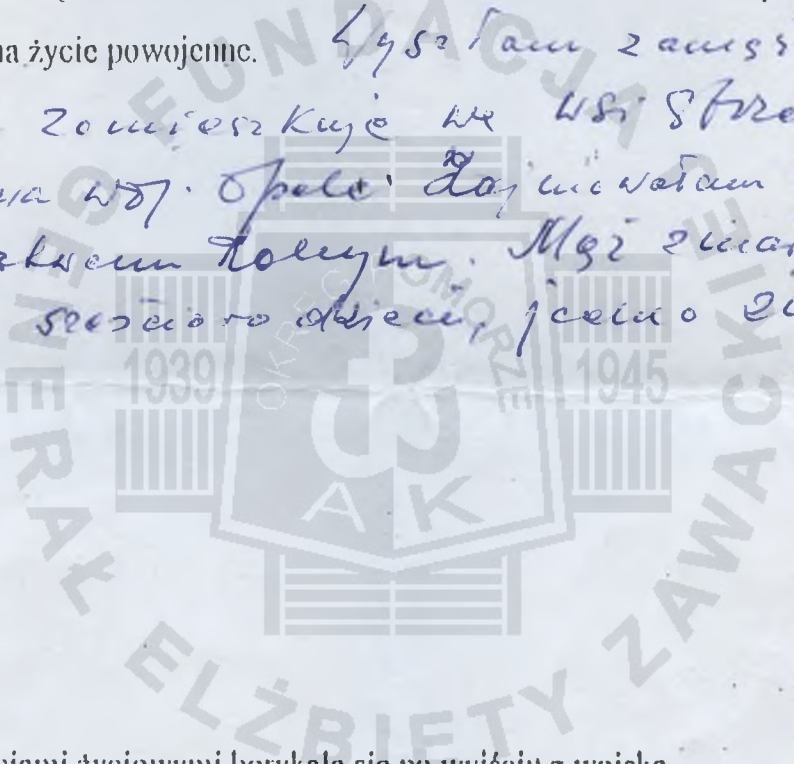 na życie powojenne. Wyszłam zamąż
zamieszkuję we wsi Strze
woj. Opole. Zajmowałam
rolnym. Mąż zmar
sześcioro dzieci, jedno
FUNDACJA GENERAŁ ELŻBIETY ZAWACKIEJ
OKRĘG POMORZE
1939 1945
AK
życiowymi borykała się po wyjściu z wojska